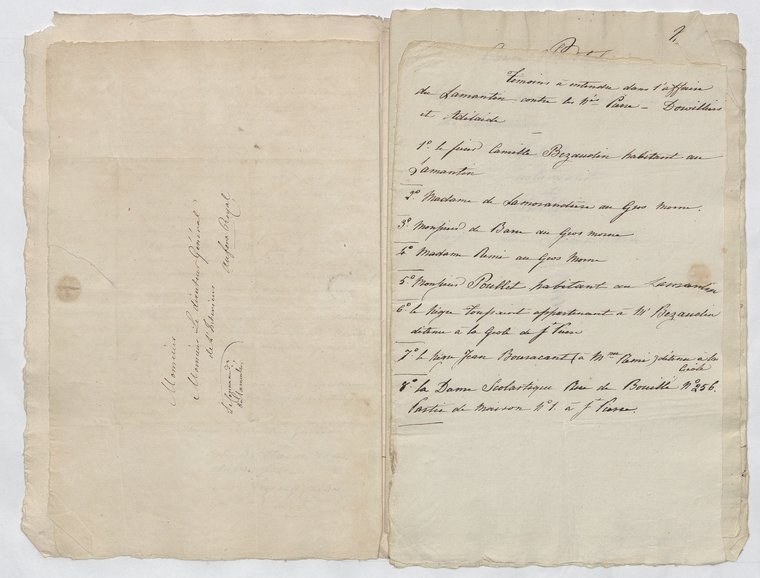 Monsieur
Monsieur Le directeur Général
de l'Intérieur
au fort Royal
2.
Témoins à entendre dans l'affaire
du Lamantin contre les N.es Pierre - Dowilliers
et Adélaïde
1.o le sieur Camille Bezaudin habitant au
Lamantin
2.o Madame de Lamorandière au Gros morne.
3.o Monsieur de Barre du Gros morne
4.o Madame Remi au Gros Morne
5.o Monsieur Poullet habitant au Lamantin
6.o le Nègre Toussaint appartenant à Mr Bezaudin
détenu à la Geole de St Pierre
7.o le Nègre Jean Bouracant (à Mme Remi) détenu à la
Geole
8.o La Dame Scolastique Rue de Bouillé No 256.
Partie de Maison No 1. à St Pierre.